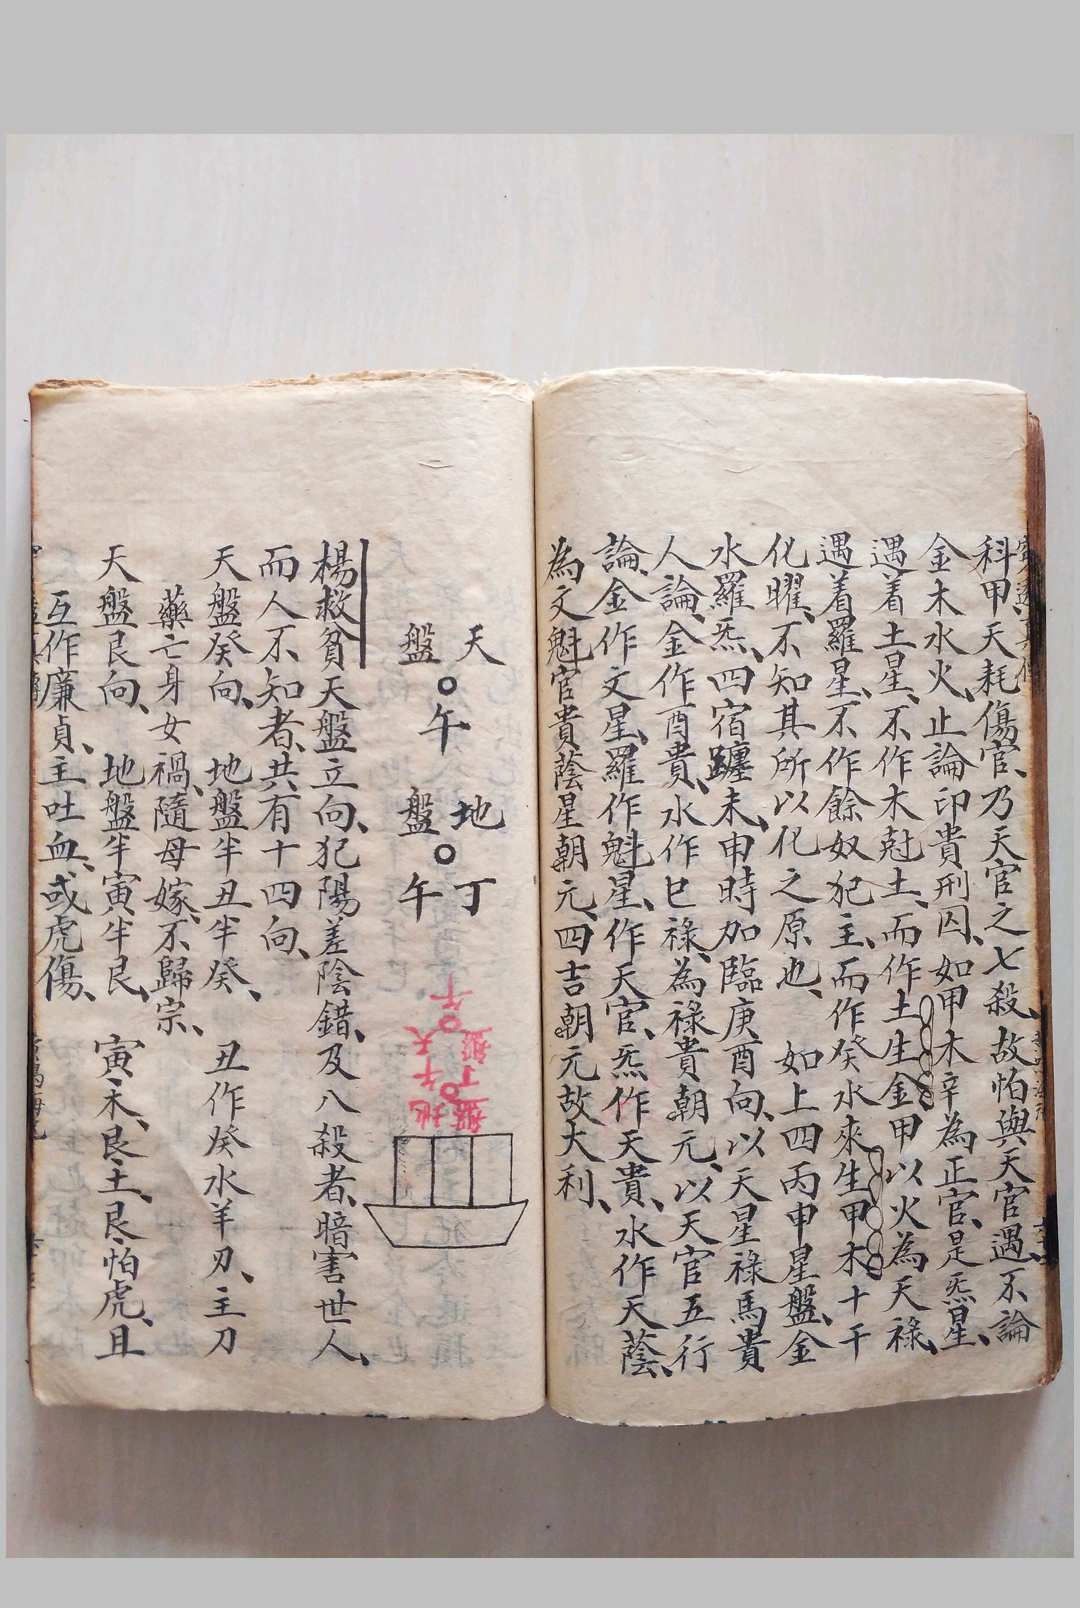 科甲天耗、傷官、乃天官之七殺、故怕與天官遇、不論
金木水火、止論印貴刑囚、如甲木辛為正官、是炁星、
遇着土星、不作木尅土、而作土生金甲以火為天祿、
遇着羅星、不作餘奴犯主、而作癸水來生甲木十干
化曜、不知其所以化之原也、如上四丙申星盤、金
水羅炁、四宿躔未、申時加臨庚酉向、以天星祿馬貴
人論、金作酉貴、水作巳祿、為祿貴朝元、以天官五行
論、金作文星、羅作魁星、作天官、炁作天貴、水作天蔭、
為文魁官貴蔭星朝元、四吉朝元故大利、
天盤○午
地盤○丁午
天盤○午
地盤○丁午
楊救貧天盤立向、犯陽差陰錯、及八殺者、暗害世人、
而人不知者、共有十四向、
天盤癸向、地盤半丑半癸、丑作癸水羊刃、主刀
藥亡身女禍、隨母嫁、不歸宗、
天盤艮向、地盤半寅半艮、寅木、艮土、艮怕虎、且
互作廉貞、主吐血、或虎傷、